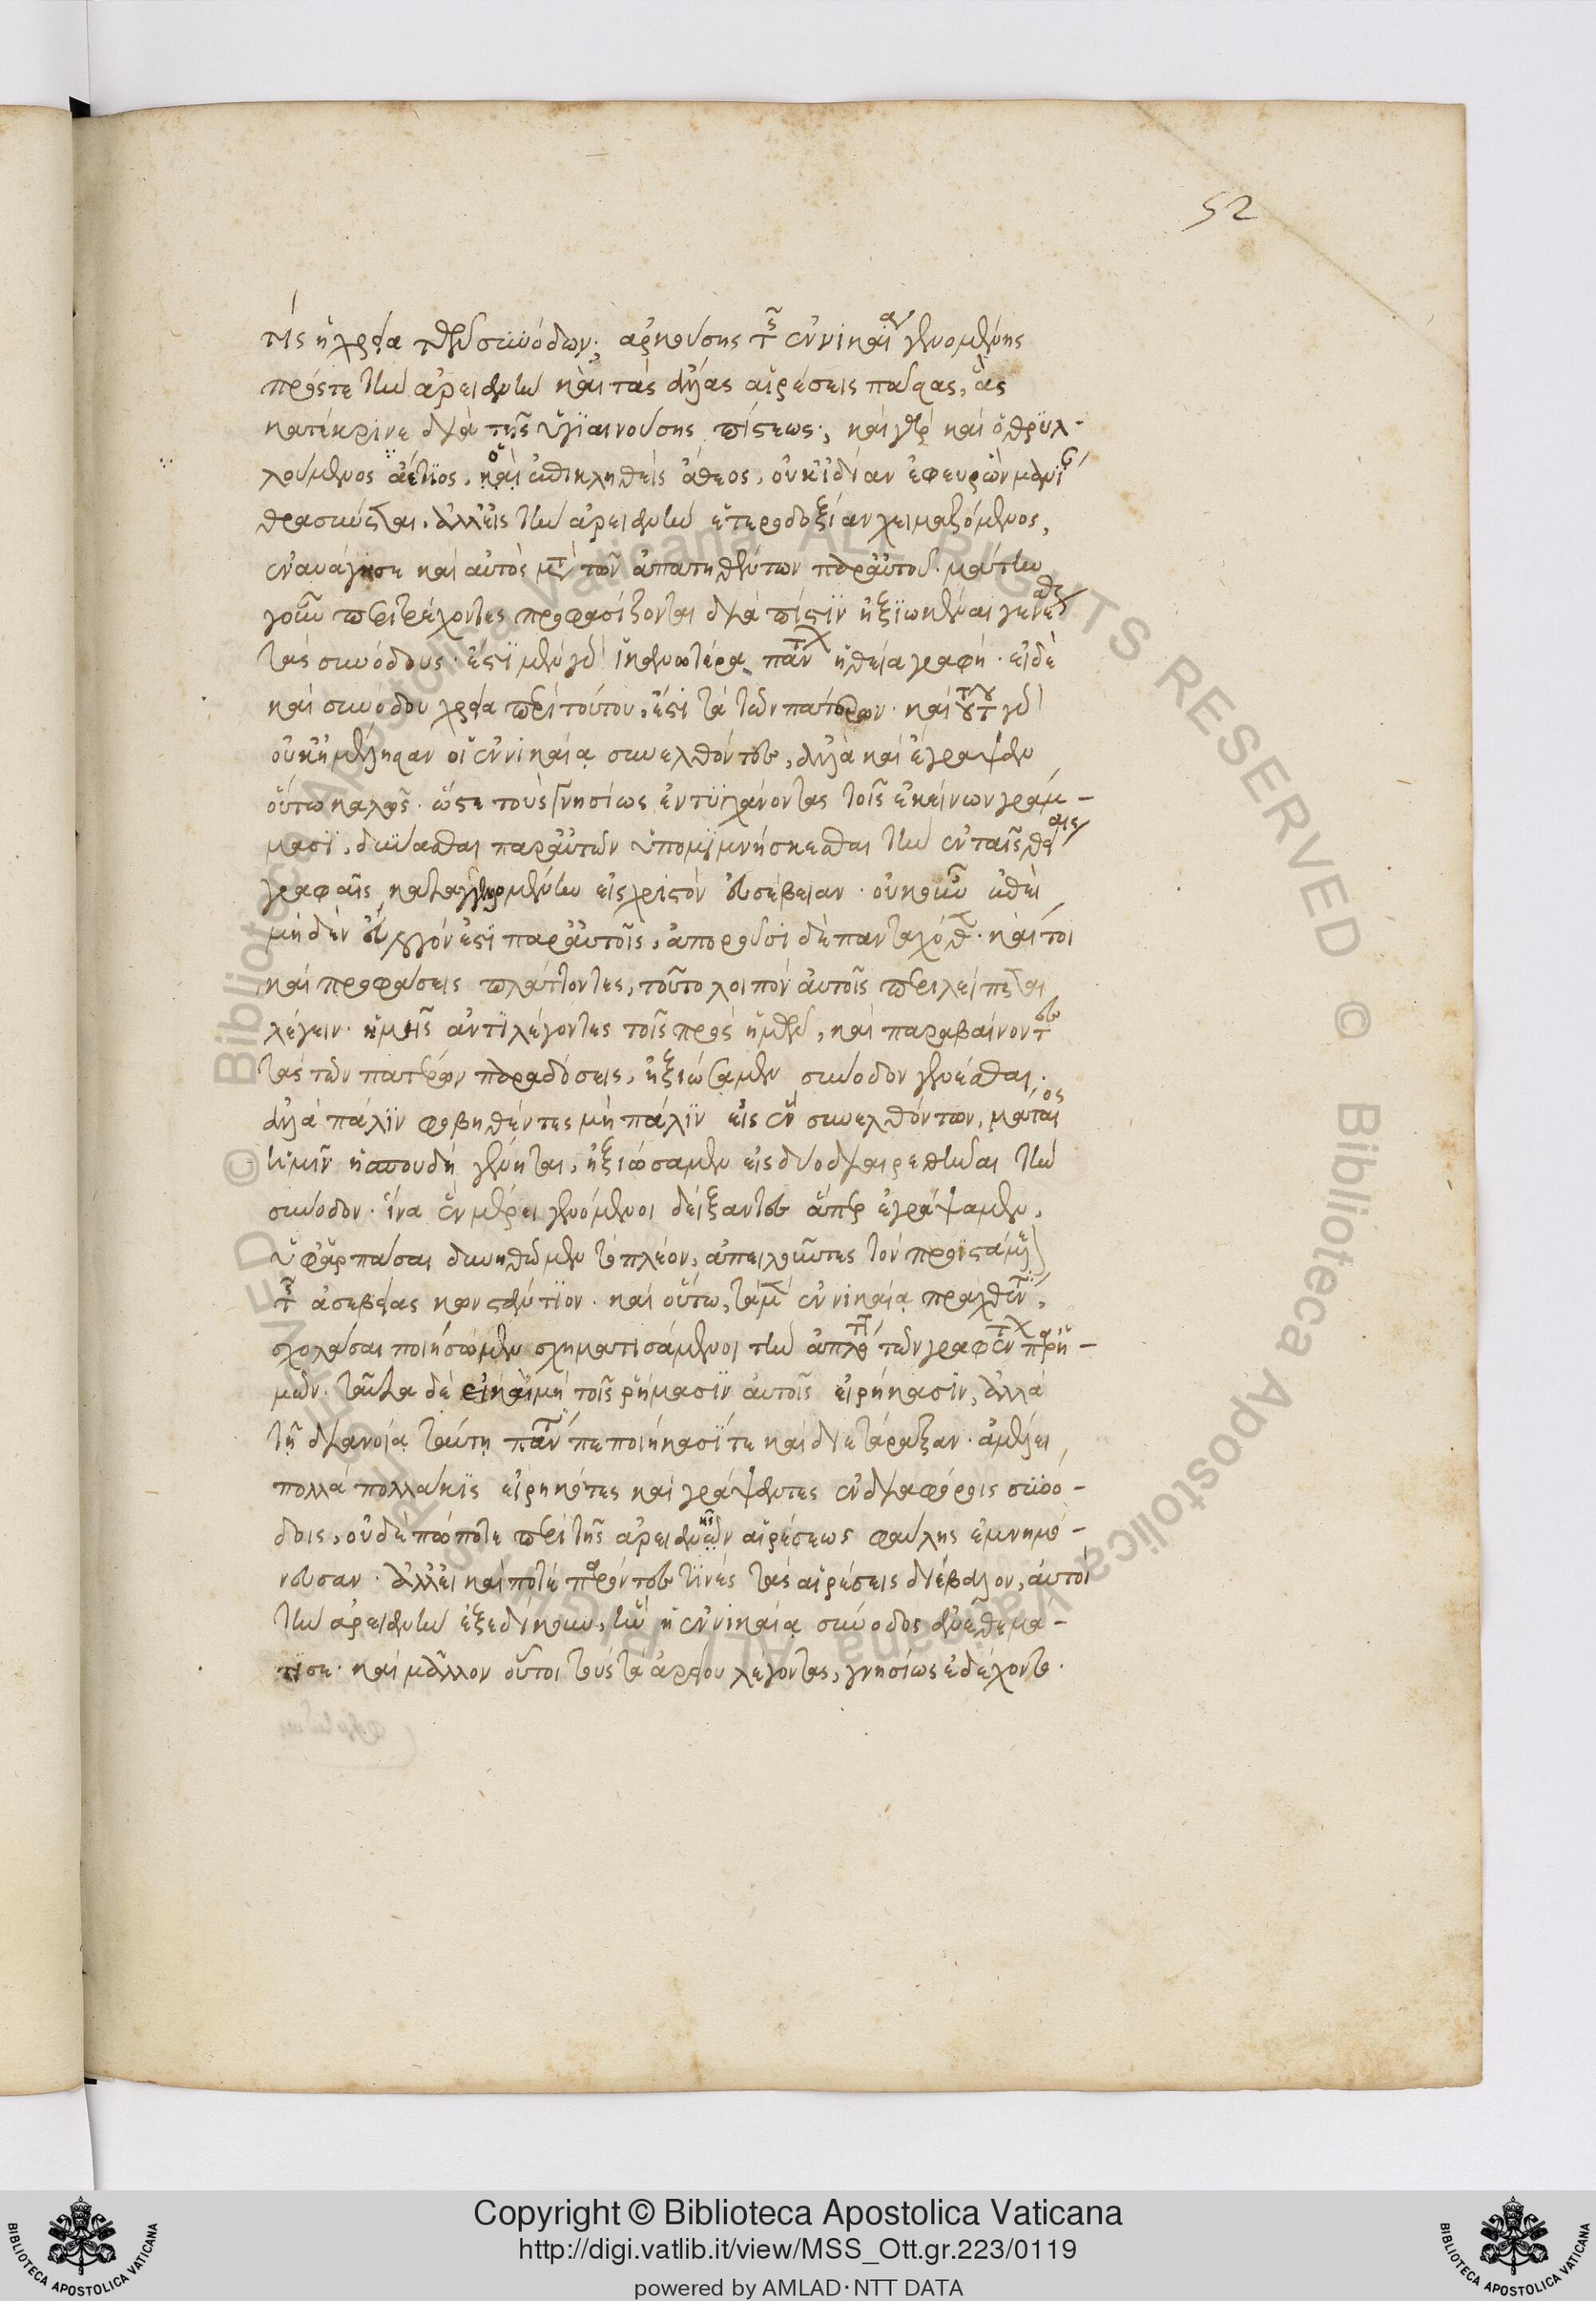 τίς ἡ χρεία τῶν συνόδων; ἀρκούσης τῆς ἐν νικαίᾳ γενομένης
πρός τε τὴν ἀρειανὴν καὶ τὰς ἄλλας αἱρέσεις πάσας, ἃς
κατέκρινε διὰ τῆς ὑγϊαινούσης πίστεως·, καὶ γὰρ καὶ ὁ θρϋλ-
λούμενος ἀέτιος, ὁ καὶ ἐπικληθεὶς ἄθεος, οὐκ ἰδίαν ἐφευρὼν μανίαν
θρασύνεται, ἀλλ' εἰς τὴν ἀρειανὴν ἑτεροδοξίαν χειμαζόμενος,
ἐναυάγησε καὶ αὐτὸς μετὰ τῶν ἀπατηθέντων παρ' αὐτοῦ. μάτην
γοῦν περιτρέχοντες προφασίζονται διὰ πίστϊν ἠξϊωκέναι γενέσθαι
τὰς συνόδους· ἔστϊ μὲν γὰρ ἱκανωτέρα πάντων ἡ θεία γραφή· εἰ δὲ
καὶ συνόδου χρεία περὶ τούτου, ἔστι τὰ τῶν πατέρων· καὶ τούτου γὰρ
οὐκ ἠμέλησαν οἱ ἐν νικαίᾳ συνελθόντες, ἀλλὰ καὶ ἔγραψαν
οὕτω καλῶς· ὥστε τοὺς γνησίως ἐντϋγχάνοντας τοῖς ἐκείνων γράμ-
μασϊ, δύνασθαι παρ' αὐτῶν ὑπομϊμνήσκεσθαι τὴν ἐν ταῖς θείαις
γραφαῖς καταγγελλομένην εἰς χριστὸν εὐσέβειαν· οὐκοῦν ἐπεὶ
μηδὲν εὔλογόν ἐστϊ παρ' αὐτοῖς, ἀποροῦσι δὲ πανταχόθεν· καί τοι
καὶ προφάσεις πλάττοντες, τοῦτο λοιπὸν αὐτοῖς περιλείπεται
λέγειν· ἡμεῖς ἀντϊλέγοντες τοῖς πρὸ ἡμῶν, καὶ παραβαίνοντες
τὰς τῶν πατέρων παραδόσεις, ἠξιώσαμεν σύνοδον γενέσθαι·
ἀλλὰ πάλϊν φοβηθέντες μὴ πάλϊν εἰς ἓν συνελθόντων, μάταιος
ἡμῖν ἡ σπουδὴ γένηται, ἠξιώσαμεν εἰς δύο διαιρεθῆναι τὴν
σύνοδον· ἵνα ἐν μέρει γενόμενοι δείξαντες ἅπερ ἐγράψαμεν,
ὑφαρπάσαι δυνηθῶμεν τὸ πλέον, ἀπειλοῦντες τὸν προϊστάμενον
τῆς ἀσεβείας κωνστάντϊον· καὶ οὕτω, τὰ μὲν ἐν νικαίᾳ πραχθέντα,
σχολάσαι ποιήσωμεν σχηματισάμενοι τὴν ἁπλότητα τῶν γραφέντων παρ' ἡ-
μῶν· ταῦτα δὲ εἰ καὶ μὴ τοῖς ῥήμασϊν αὐτοῖς εἰρήκασϊν, ἀλλὰ
τῇ διανοίᾳ ταύτῃ πάντα πεποιήκασϊ τε καὶ διετάραξαν· ἀμέλει
πολλὰ πολλάκϊς εἰρηκότες καὶ γράψαντες ἐν διαφόροις συνό-
δοις, οὐδὲ πώποτε περὶ τῆς ἀρειανῆς αἱρέσεως φαύλης ἐμνημό-
νευσαν· ἀλλ' εἰ καί ποτε παρόντες τϊνὲς τὰς αἱρέσεις διέβαλλον, αὐτοὶ
τὴν ἀρειανὴν ἐξεδίκουν, ἣν ἡ ἐν νικαίᾳ σύνοδος ἀνεθεμά-
τϊσε· καὶ μᾶλλον οὗτοι τοὺς τὰ ἀρείου λέγοντας, γνησίως ἐδέχοντο·
52
Copyright © Biblioteca Apostolica Vaticana
http://digi.vatlib.it/view/MSS_Ott.gr.223/0119
powered by AMLAD·NTT DATA